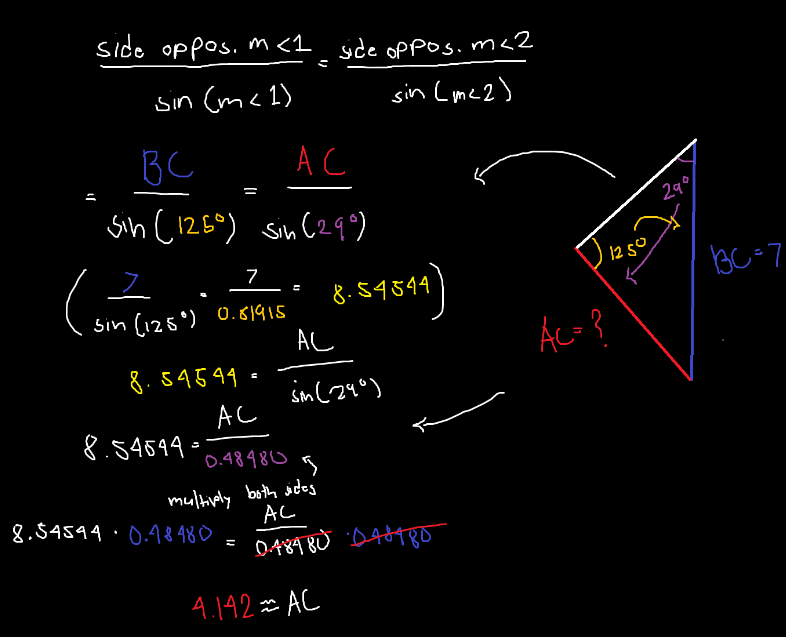 side oppos. m<1 = side oppos. m<2
sin(m<1) sin(m<2)
= BC = AC
sin(125°) sin(29°)
( 7 = 7 = 8.54544 )
sin(125°) 0.81915
8.54544 = AC
sin(29°)
8.54544 = AC
0.48480
multiply both sides
8.54544 · 0.48480 = AC
0.48480 · 0.48480
4.142 ≈ AC
29°
125°
BC=7
AC=?